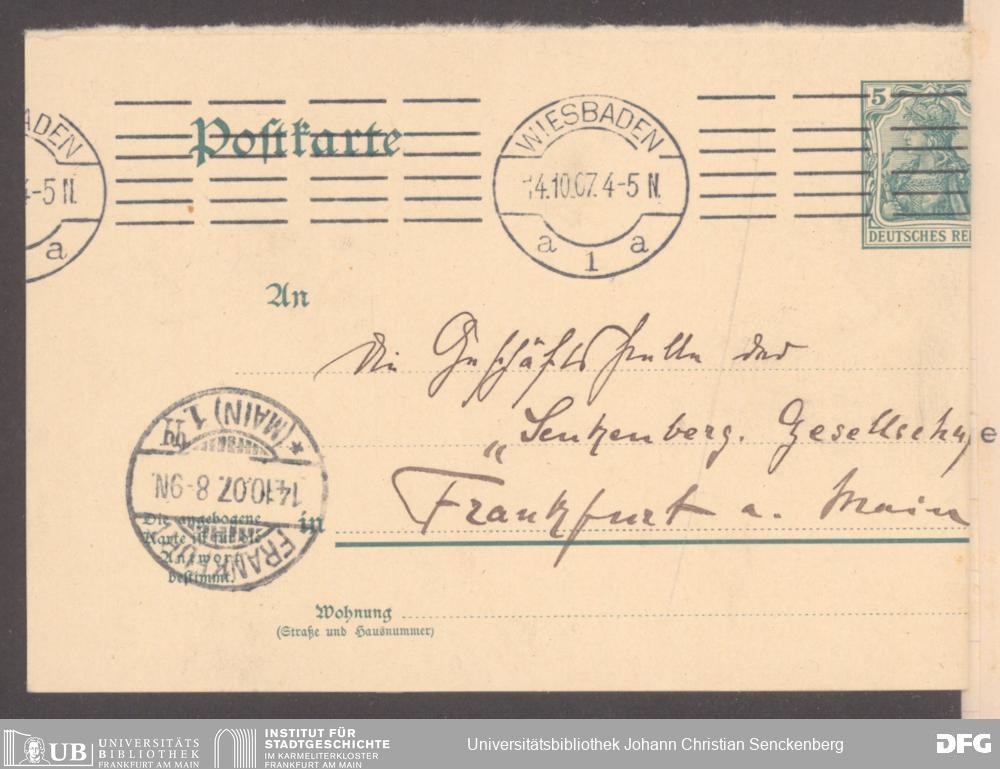 ADEN
4-5 N.
a
Postkarte
WIESBADEN
14.10.07. 4-5 N.
a 1 a
5
DEUTSCHES REI
An
Die Geschäftsstelle der
„Senkenberg. Gesellscha
e
in Frankfurt a. Main
* (MAIN) 1.
14.10.07. 8-9N.
FRANKFURT
Die angebogene
Karte ist für die
Antwort
bestimmt.
Wohnung
(Straße und Hausnummer)
UB UNIVERSITÄTS
BIBLIOTHEK
FRANKFURT AM MAIN
INSTITUT FÜR
STADTGESCHICHTE
IM KARMELITERKLOSTER
FRANKFURT AM MAIN
Universitätsbibliothek Johann Christian Senckenberg
DFG